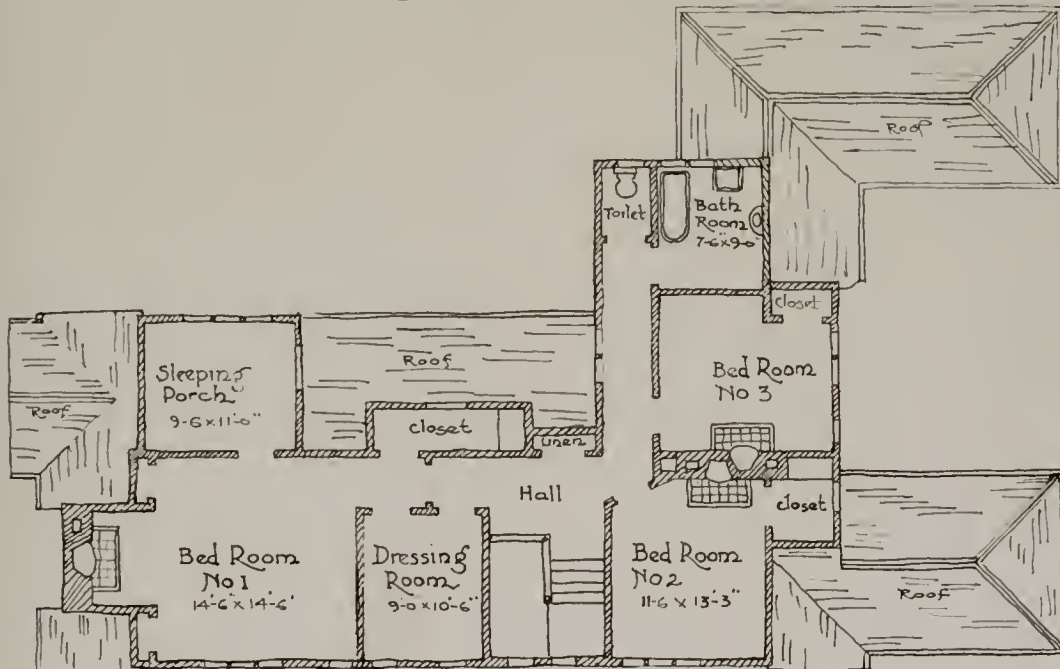 Roof
Toilet
Bath
Room
7-6"x9-0"
closet
Sleeping
Porch
9-6x11'-0"
Roof
Roof
closet
Linen
Bed Room
No 3
Hall
closet
Bed Room
No 1
14'-6"x14'-6"
Dressing
Room
9-0x10'-6"
Bed Room
No 2
11-6x13'-3"
Roof